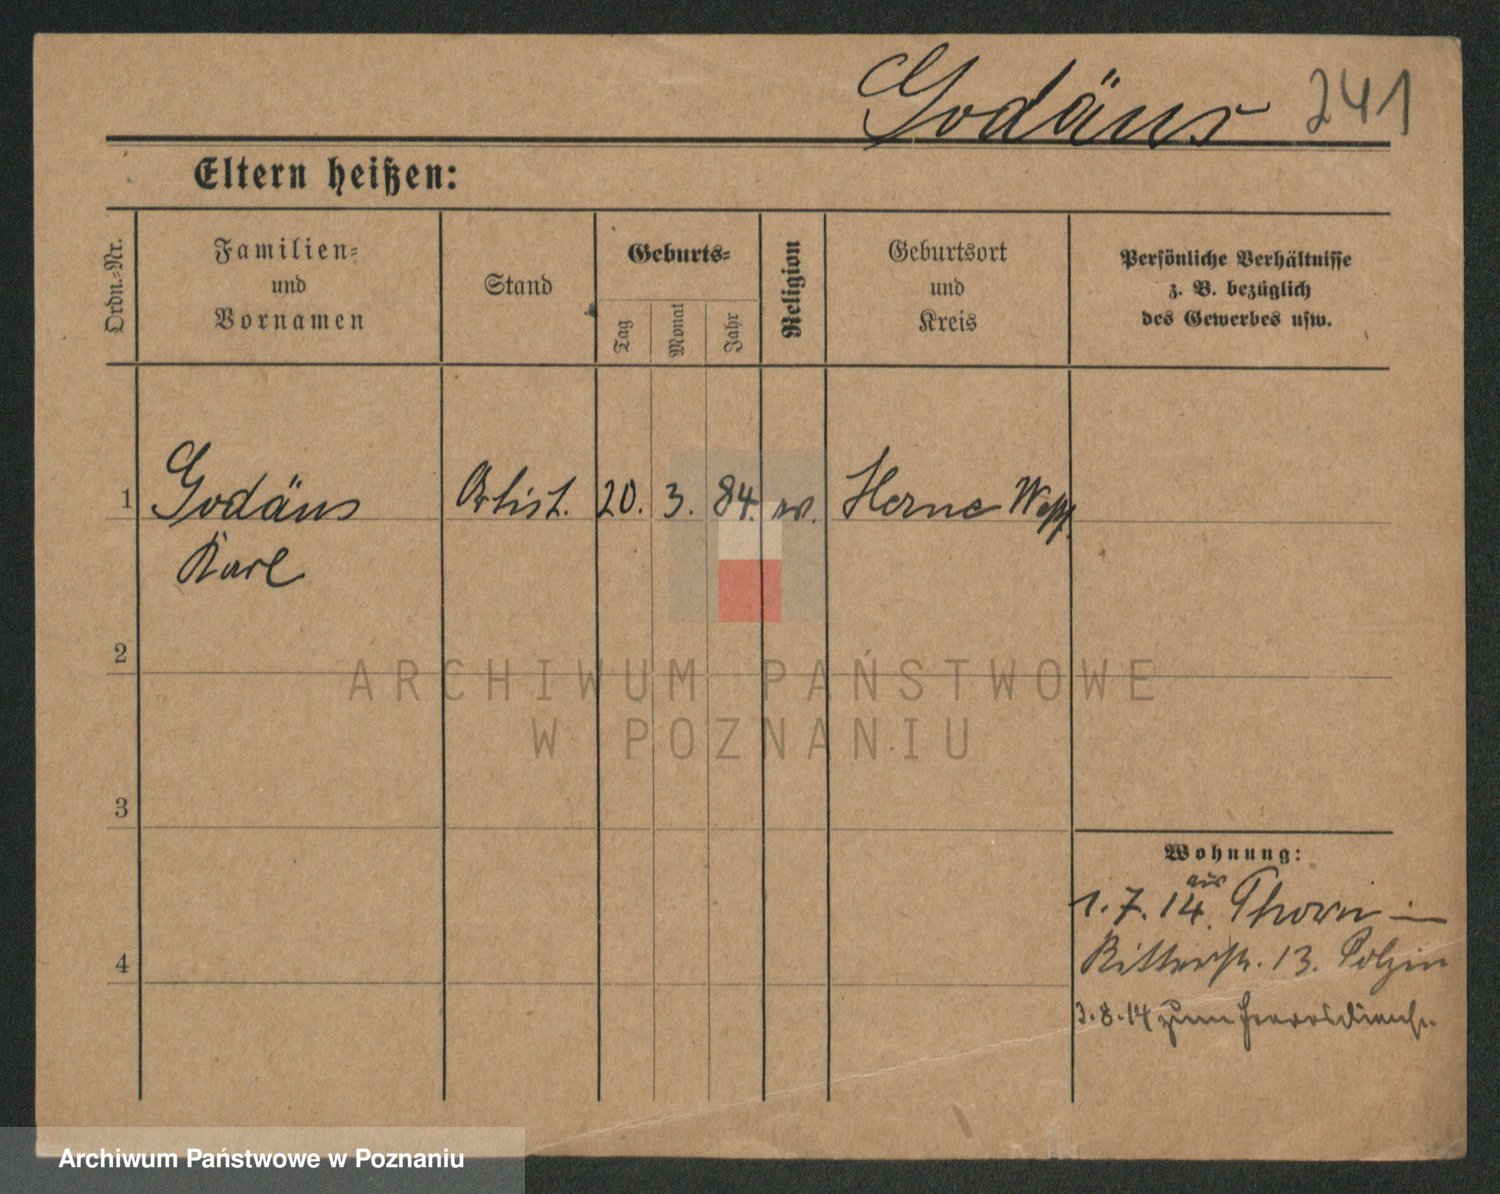 Godäns 241
Eltern heißen:
Ordn.-Nr.
Familien-
und
Vornamen
Stand
Geburts-
Tag
Monat
Jahr
Religion
Geburtsort
und
Kreis
Persönliche Verhältnisse
z. B. bezüglich
des Gewerbes usw.
1 Godäns Artist. 20. 3. 84. ev. Herne Westf.
Karl
2
ARCHIWUM PAŃSTWOWE
W POZNANIU
3
Wohnung:
aus
1.7.14. Thorn in
Ritterstr. 13. Polzin
3.8.14 zum Heeresdienst
4
Archiwum Państwowe w Poznaniu